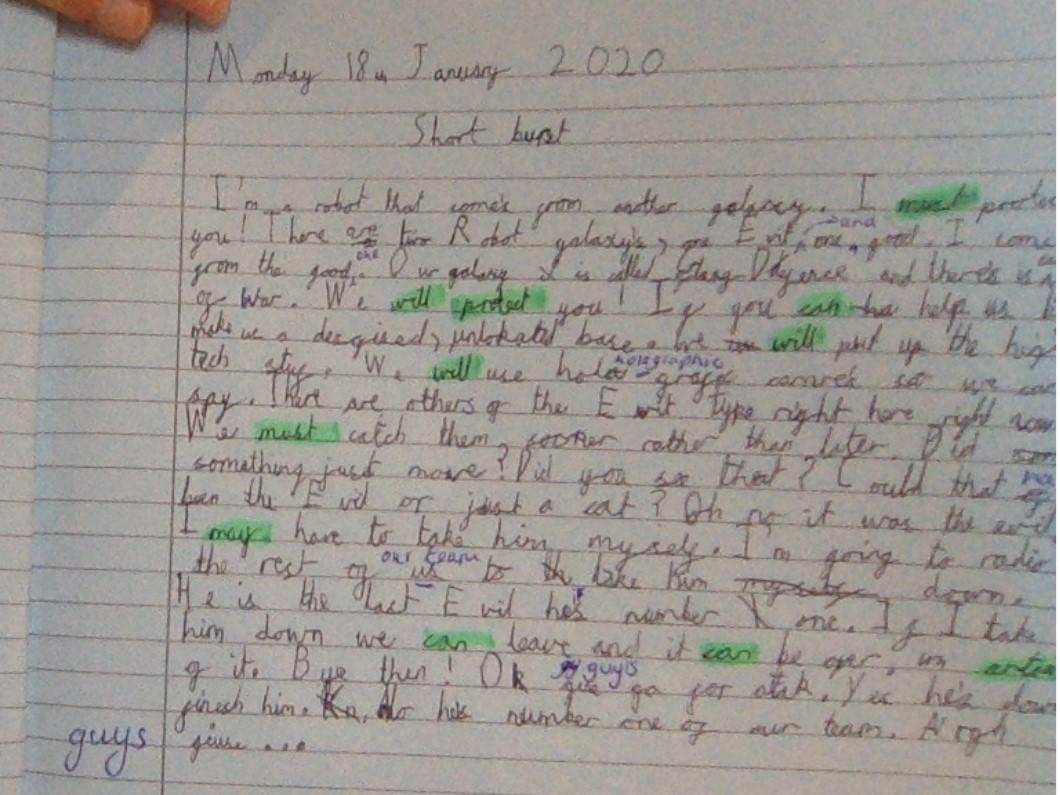 Monday 18th January 2020
Short burst
I'm a robot that comes from another galaxy. I must protec
you! There are two Robot galaxy's, one Evil, and one good. I come
from the good one. Our galaxy is called and there's is
of War. We will protect you! If you can help us
make us a desgised, unlokatid base. We will put up the high
tech stuf. We will use holographic camrek so we can
spy. There are others of the Evil type right here right now
We must catch them, sooner rather than later. Did
something just move? Did you see that? Could that
been the Evil or just a cat? Oh no it was the evil
I may have to take him my self. I'm going to radio
the rest of our team to take him down.
He is the last Evil he's number one. If I take
him down we can leave and it can be over,
of it. Bye then! Ok guys go for atak. Yes he's down
finish him. No he's number one of our team. Argh
guys